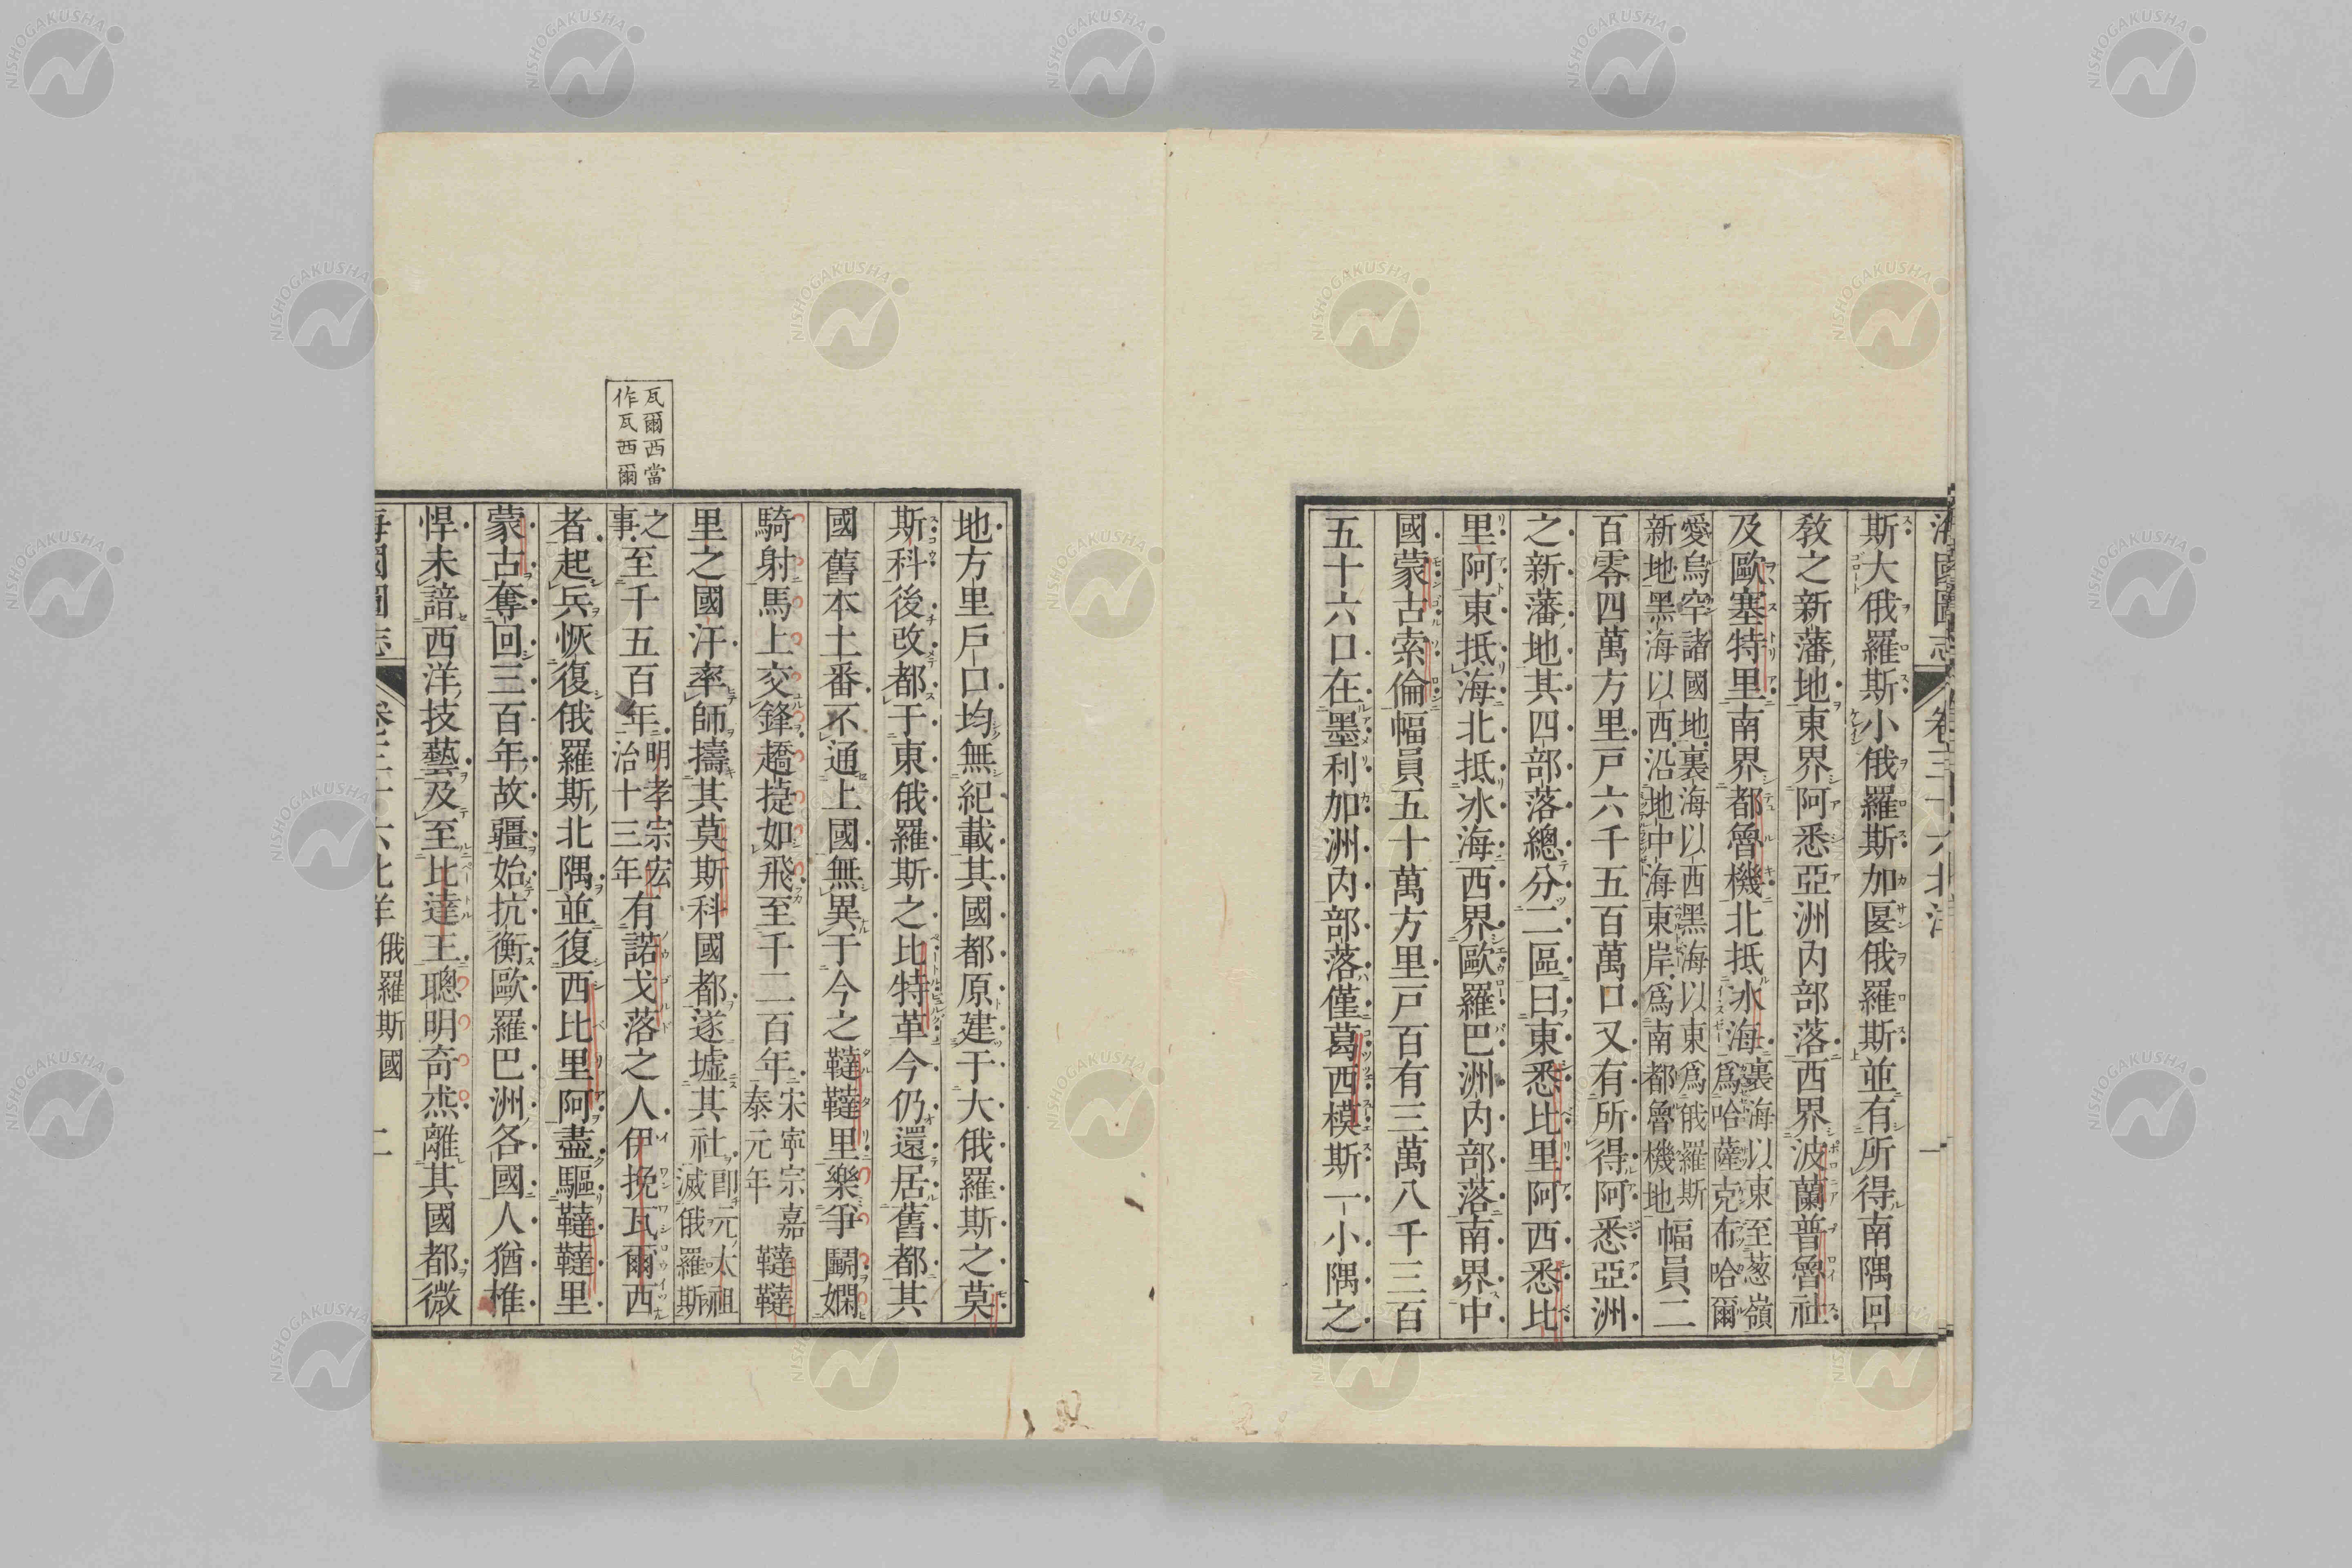 海國圖志 卷三十六 北洋 一
斯大俄羅斯小俄羅斯加匽俄羅斯並有所得南隅回
敎之新藩地東界阿悉亞洲內部落西界波蘭普魯社
及歐塞特里南界都魯機北抵冰海裏海以東至葱嶺爲哈薩克布哈爾
愛烏罕諸國地裏海以西黑海以東爲俄羅斯新地黑海以西沿地中海東岸爲南都魯機地幅員二
百零四萬方里戶六千五百萬口又有所得阿悉亞洲
之新藩地其四部落總分二區曰東悉比里阿西悉比
里阿東抵海北抵冰海西界歐羅巴洲內部落南界中
國蒙古索倫幅員五十萬方里戸百有三萬八千三百
五十六口在墨利加洲內部落僅葛西模斯一小隅之
地方里戶口均無紀載其國都原建于大俄羅斯之莫
斯科後改都于東俄羅斯之比特革今仍還居舊都其
國舊本土番不通上國無異于今之韃韃里樂爭鬬嫻
騎射馬上交鋒趫捷如飛至千二百年宋寧宗嘉泰元年韃韃
里之國汗率師擣其莫斯科國都遂墟其社卽元太祖滅俄羅斯
之事至千五百年明孝宗宏治十三年有諾戈落之人伊挽瓦爾西
者起兵恢復俄羅斯北隅並復西比里阿盡驅韃韃里
蒙古奪回三百年故疆始抗衡歐羅巴洲各國人猶椎
悍未諳西洋技藝及至比達王聰明奇杰離其國都微
海國圖志 卷三十六 北洋 俄羅斯國 二
瓦爾西當
作瓦西爾
NISHOGAKUSHA